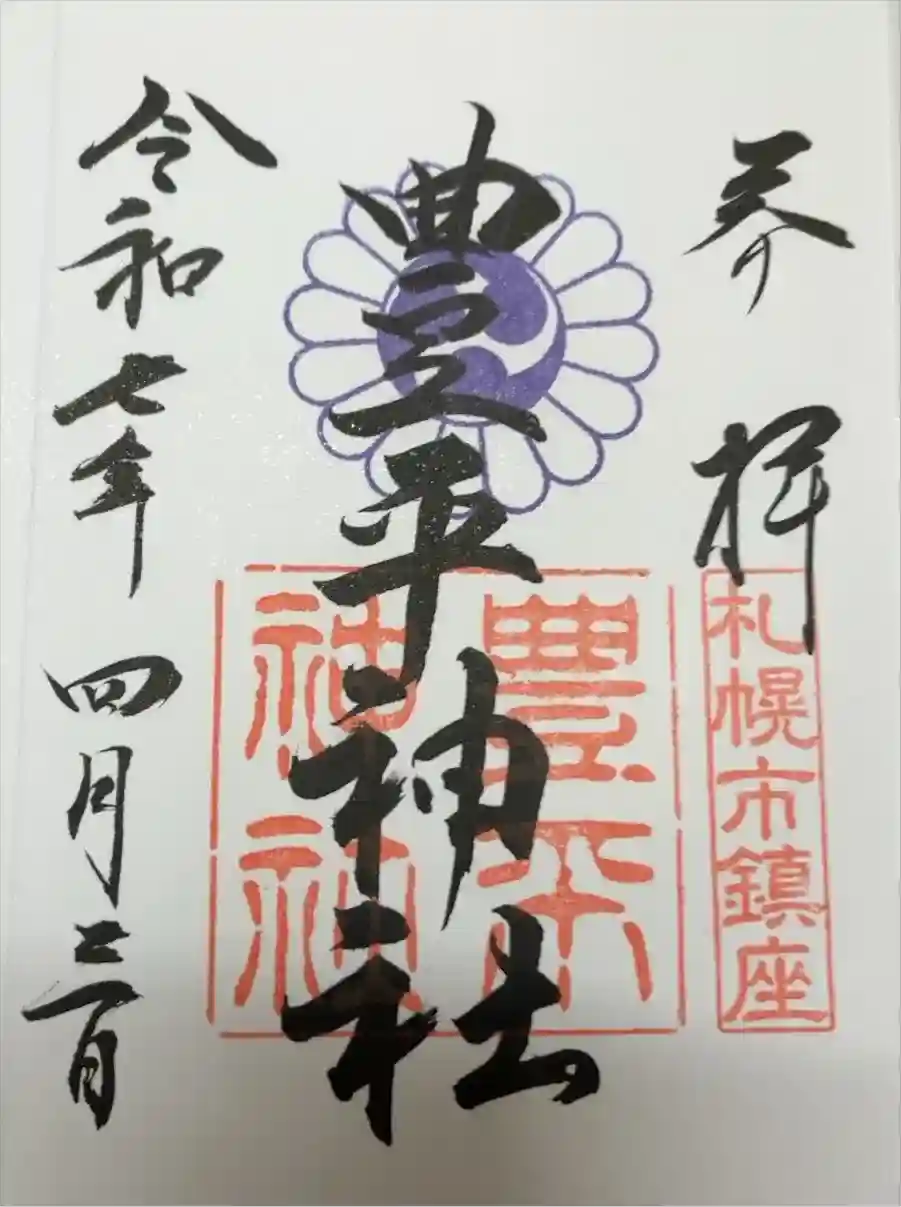 奉拝
札幌市鎮座
豊平神社
豊平
神社
令和七年 四月三日